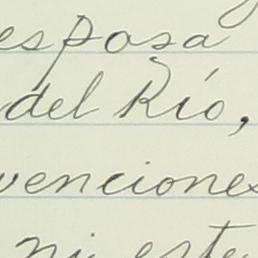 esposa
del Río,
venciones
ni este